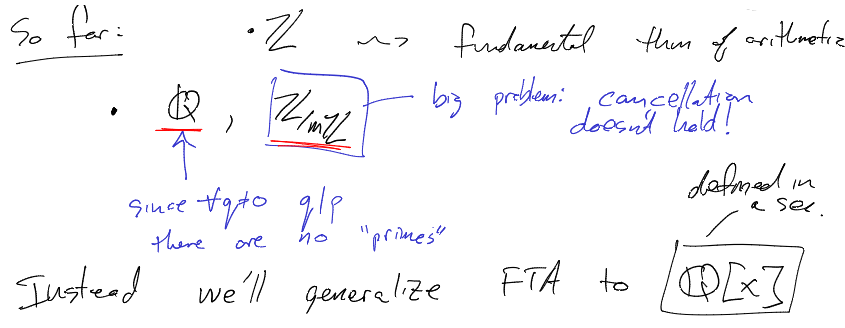 So far: • ℤ ⇝ fundamental thm of arithmetic
• ℚ, ℤ/mℤ big problem: cancellation
doesn't hold!
since ∀q≠0 q|p
there are no "primes"
defined in
a sec.
Instead we'll generalize FTA to ℚ[x]